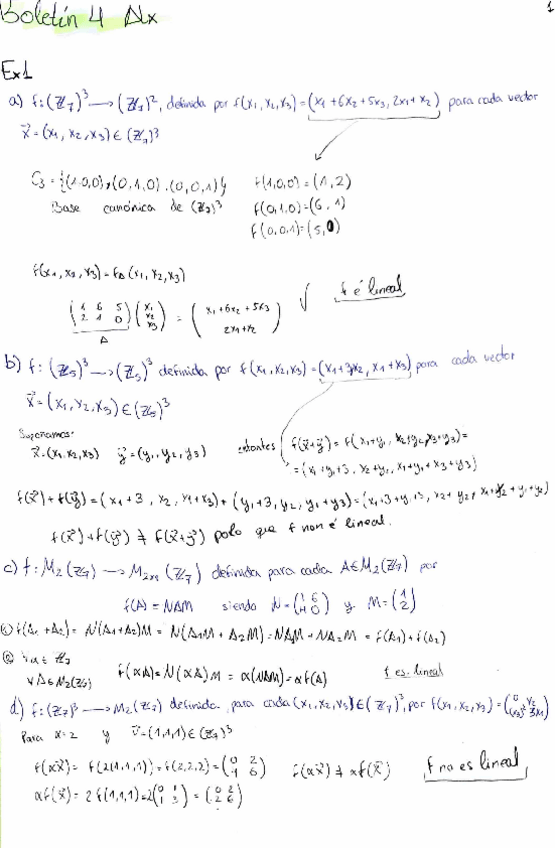 Boletín 4 Alx
1
Ex1
a) f: (Z₇)³ → (Z₇)², definida por f(x₁, x₂, x₃) = (x₁ + 6x₂ + 5x₃, 2x₁ + x₂) para cada vector
x⃗ = (x₁, x₂, x₃) ∈ (Z₇)³
C₃ = {(1,0,0), (0,1,0), (0,0,1)} f(1,0,0) = (1,2)
Base canónica de (Z₇)³ f(0,1,0) = (6,1)
f(0,0,1) = (5,0)
f(x₁, x₂, x₃) = f_A(x₁, x₂, x₃)
(1 6 5 / 2 1 0) (x₁ / x₂ / x₃) = (x₁ + 6x₂ + 5x₃ / 2x₁ + x₂) √ f é lineal
A
b) f: (Z₅)³ → (Z₅)³ definida por f(x₁, x₂, x₃) = (x₁+3, x₂, x₁+x₃) para cada vector
x⃗ = (x₁, x₂, x₃) ∈ (Z₅)³
Supoñamos:
x⃗ = (x₁, x₂, x₃) y⃗ = (y₁, y₂, y₃) entonces f(x⃗+y⃗) = f(x₁+y₁, x₂+y₂, x₃+y₃) =
= (x₁+y₁+3, x₂+y₂, x₁+y₁+x₃+y₃)
f(x⃗) + f(y⃗) = (x₁+3, x₂, x₁+x₃) + (y₁+3, y₂, y₁+y₃) =
f(x⃗) + f(y⃗) ≠ f(x⃗+y⃗) polo que f non é lineal.
c) f: M₂(Z₇) → M₂ₓ₁(Z₇) definida para cada A ∈ M₂(Z₇) por
f(A) = NAM siendo N = (1 6 / 4 0) y M = (1 / 2)
① f(A₁+A₂) = N(A₁+A₂)M = N(A₁M + A₂M) = NA₁M + NA₂M = f(A₁) + f(A₂)
② ∀α ∈ Z₇
∀A ∈ M₂(Z₇) f(αA) = N(αA)M = α(NAM) = αf(A) f es lineal
d) f: (Z₇)³ → M₂(Z₇) definida para cada (x₁, x₂, x₃) ∈ (Z₇)³, por f(x₁, x₂, x₃) =
Para α = 2 y v⃗ = (1,1,1) ∈ (Z₇)³
f(αx⃗) = f(2(1,1,1)) = f(2,2,2) = (0 2 / 4 6) f(αx⃗) ≠ αf(x⃗) f no es lineal
αf(x⃗) = 2f(1,1,1) = 2(0 1 / 1 3) = (0 2 / 2 6)